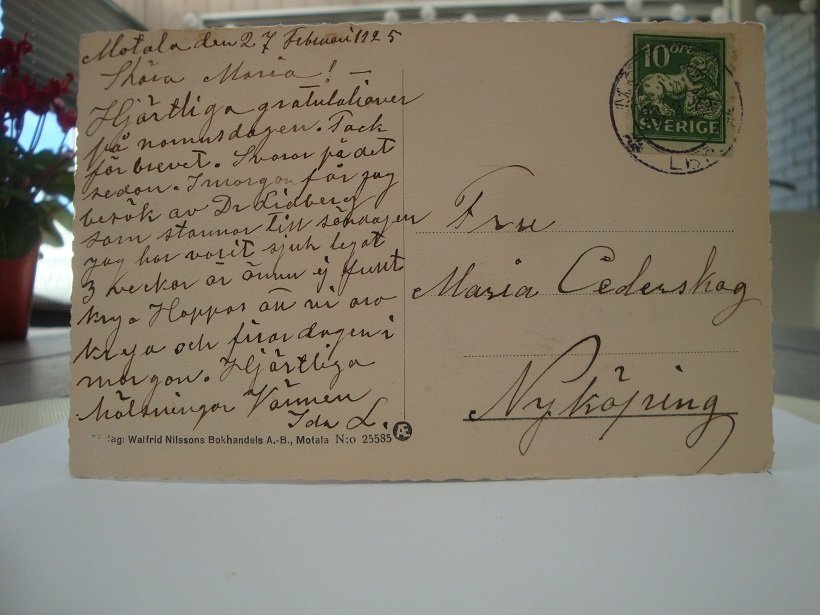 Motala den 27 Februari 1925
Kära Maria! —
Hjärtliga gratulationer
på namnsdagen. Tack
för brevet. Svarar på det
sedan. I morgon får jag
besök av Dr Lidberg
som stannar till söndagen
jag har varit sjuk legat
3 veckor är ännu ej fullt
krya Hoppas att ni äro
krya och firar dagen i
morgon. Hjärtliga
hälsningar Vännen
Ida L.
lag: Walfrid Nilssons Bokhandels A.-B., Motala N:o 25585
10 ÖRE
SVERIGE
LBR
Fru
Maria Cederskog
Nyköping